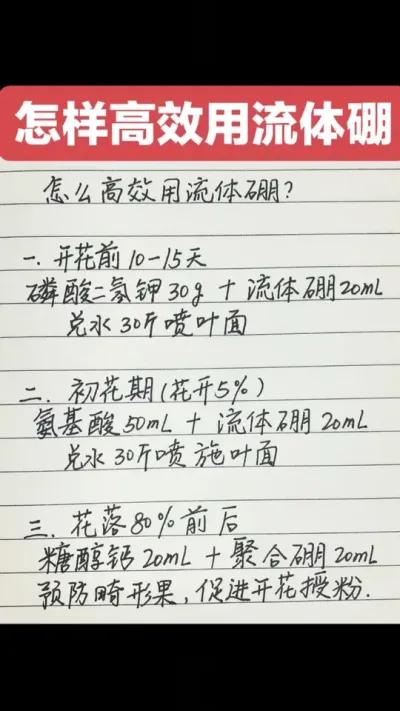 怎样高效用流体硼
怎么高效用流体硼?
一. 开花前10-15天
磷酸二氢钾30g + 流体硼20mL
兑水30斤喷叶面
二. 初花期(花开5%)
氨基酸50mL + 流体硼20mL
兑水30斤喷施叶面
三. 花落80%前后
糖醇钙20mL + 聚合硼20mL
预防畸形果,促进开花授粉.